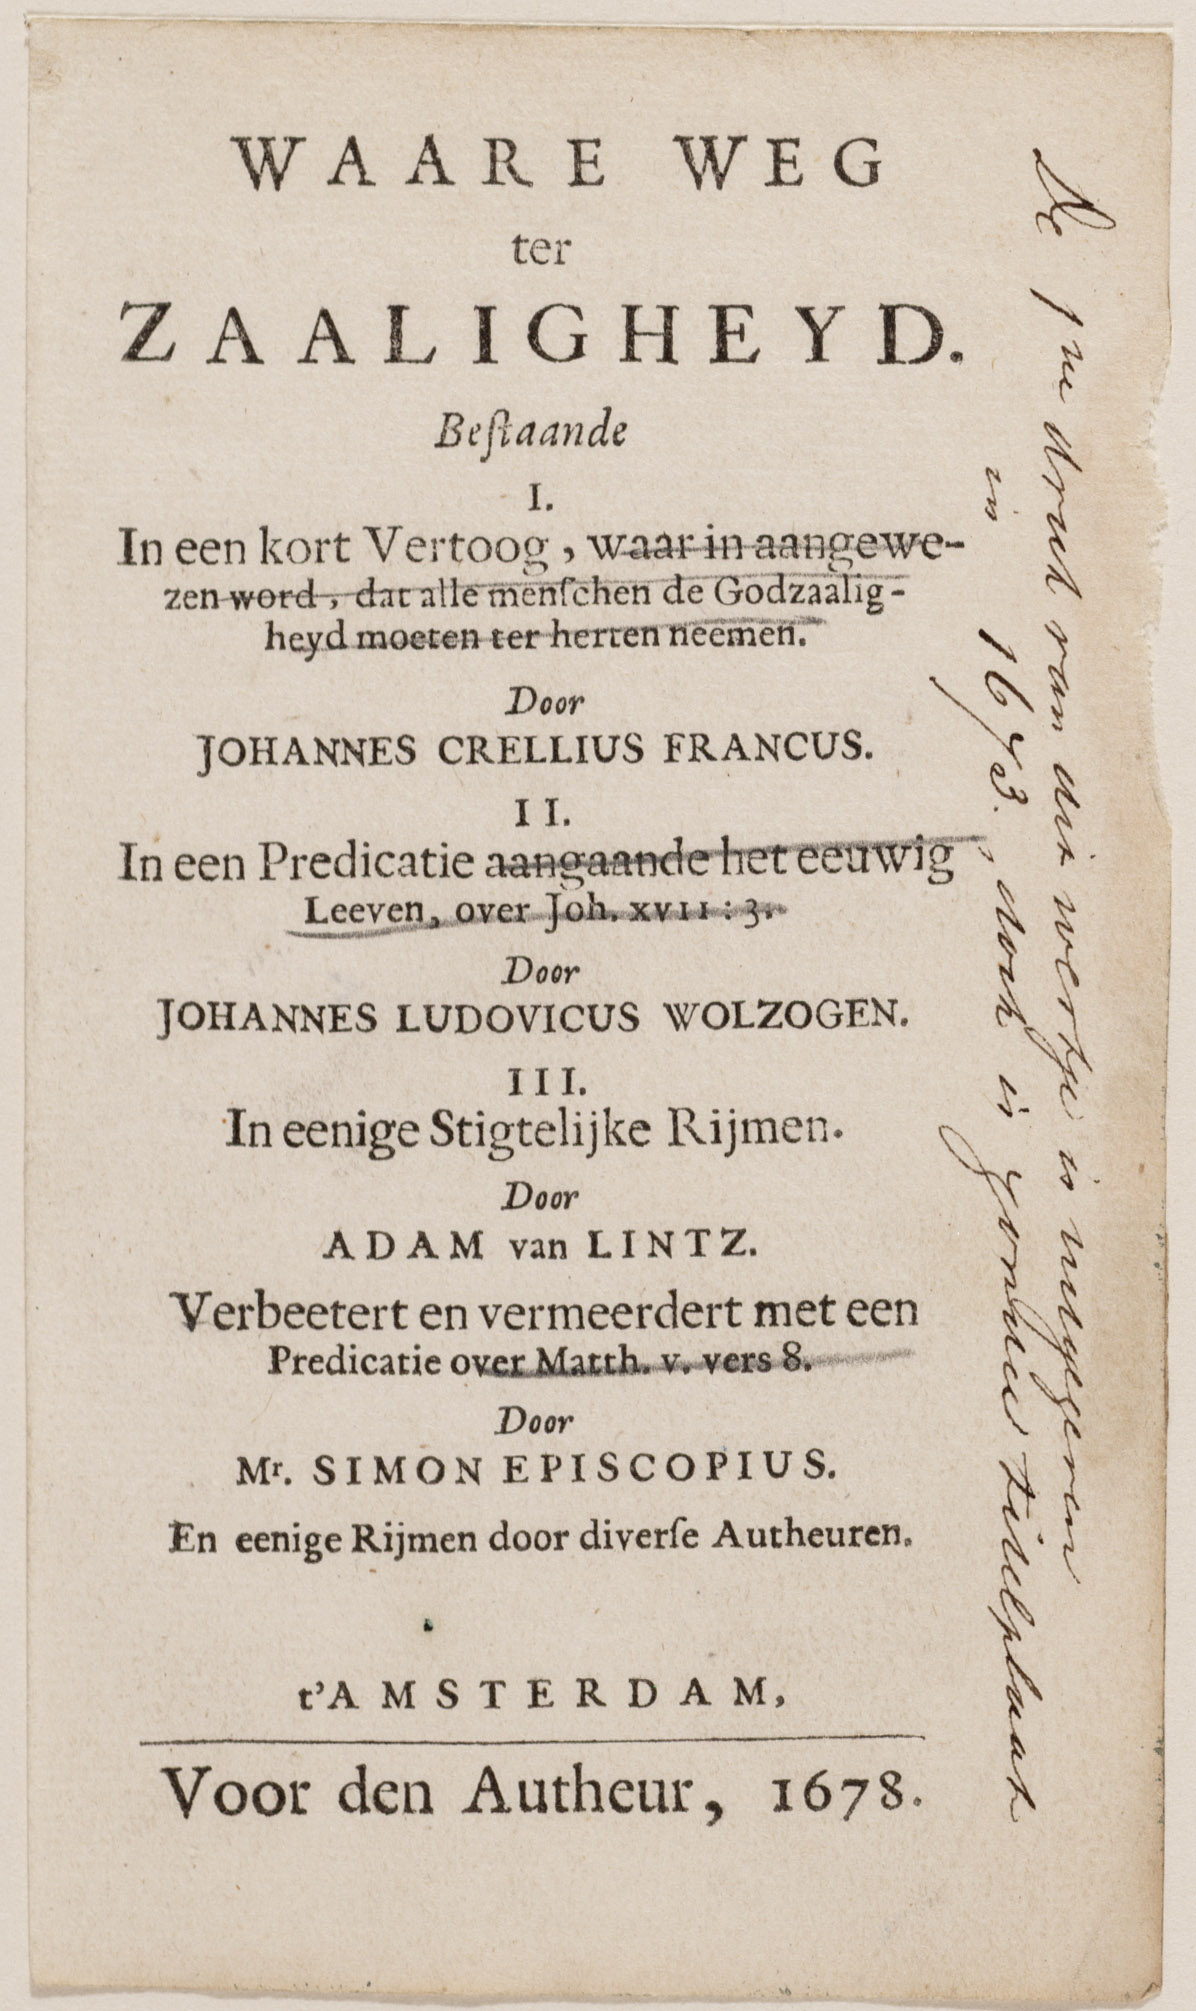 WAARE WEG
ter
ZAALIGHEYD.
Beſtaande
I.
In een kort Vertoog, waar in aangewe-
zen word, dat alle menſchen de Godzaalig-
heyd moeten ter herten neemen.
Door
JOHANNES CRELLIUS FRANCUS.
II.
In een Predicatie aangaande het eeuwig
Leeven, over Joh. XVII: 3.
Door
JOHANNES LUDOVICUS WOLZOGEN.
III.
In eenige Stigtelijke Rijmen.
Door
ADAM van LINTZ.
Verbeetert en vermeerdert met een
Predicatie over Matth. v. vers 8.
Door
Mr. SIMON EPISCOPIUS.
En eenige Rijmen door diverſe Autheuren.
t'AMSTERDAM,
Voor den Autheur, 1678.
De 1ne druk van dit werkje is uitgegeven
in 1673, doch is zonder titelplaat